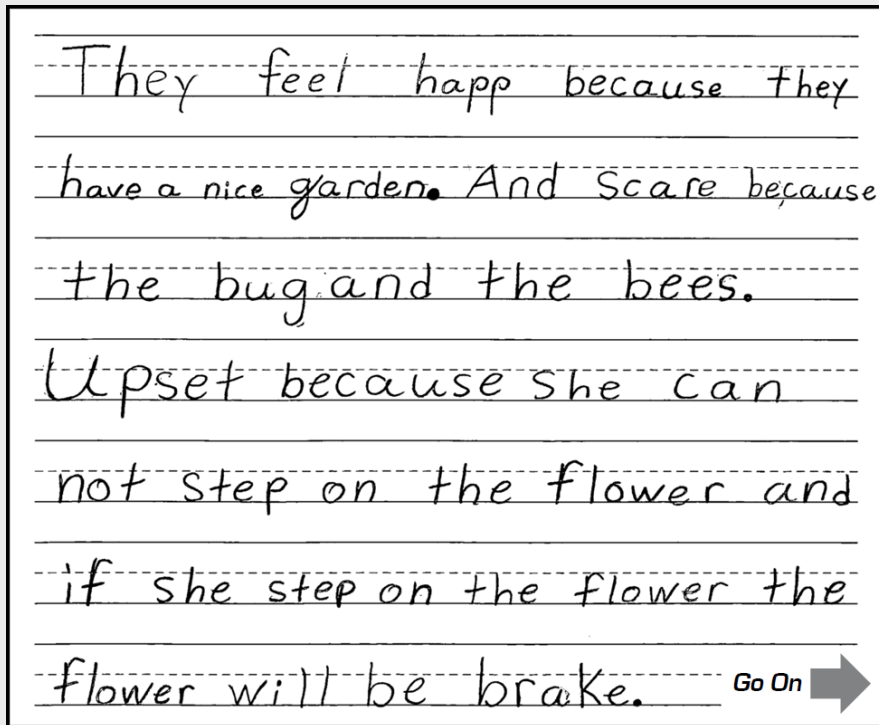 They feel happ because they
have a nice garden. And Scare because
the bug and the bees.
Upset because she can
not step on the flower and
if she step on the flower the
flower will be brake.
Go On